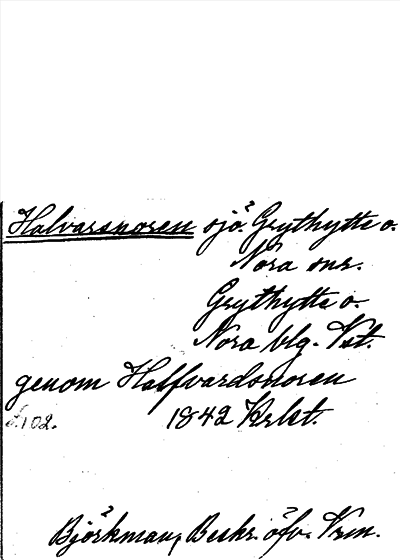 Halvarsnoren sjö. Grythytte o.
Nora snr.
Grythytte o.
Nora blg. Vst.
genom Halfvardsnoren
s. 102. 1842 Krkt.
Björkman, Beskr. öfv. Vrm.